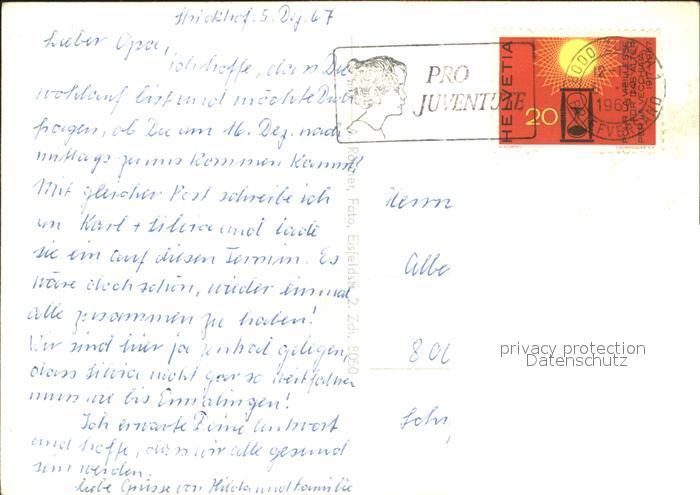 Strickhof. 5. Dez. 67
Lieber Opa,
ich hoffe, dass Du
wohlauf bist und möchte Dich
fragen, ob Du am 16. Dez. nach-
mittags zu uns kommen kannst?
Mit gleicher Post schreibe ich
an Karl + Silvia und lade
sie ein auf diesen Termin. Es
wäre doch schön, wieder einmal
alle zusammen zu haben!
Wir sind hier ja zentral gelegen,
dass Silvia nicht gar so weit fahren
muss wie bis Ennetlingen!
Ich erwarte Deine Antwort
und hoffe, dass wir alle gesund
sein werden.
Liebe Grüsse von Hilda und Familie
PRO
JUVENTUTE
HELVETIA
20
Foto, Eisfeldstr. 2, Zch. 8050
Herrn
Albe
8 00
privacy protection
Datenschutz